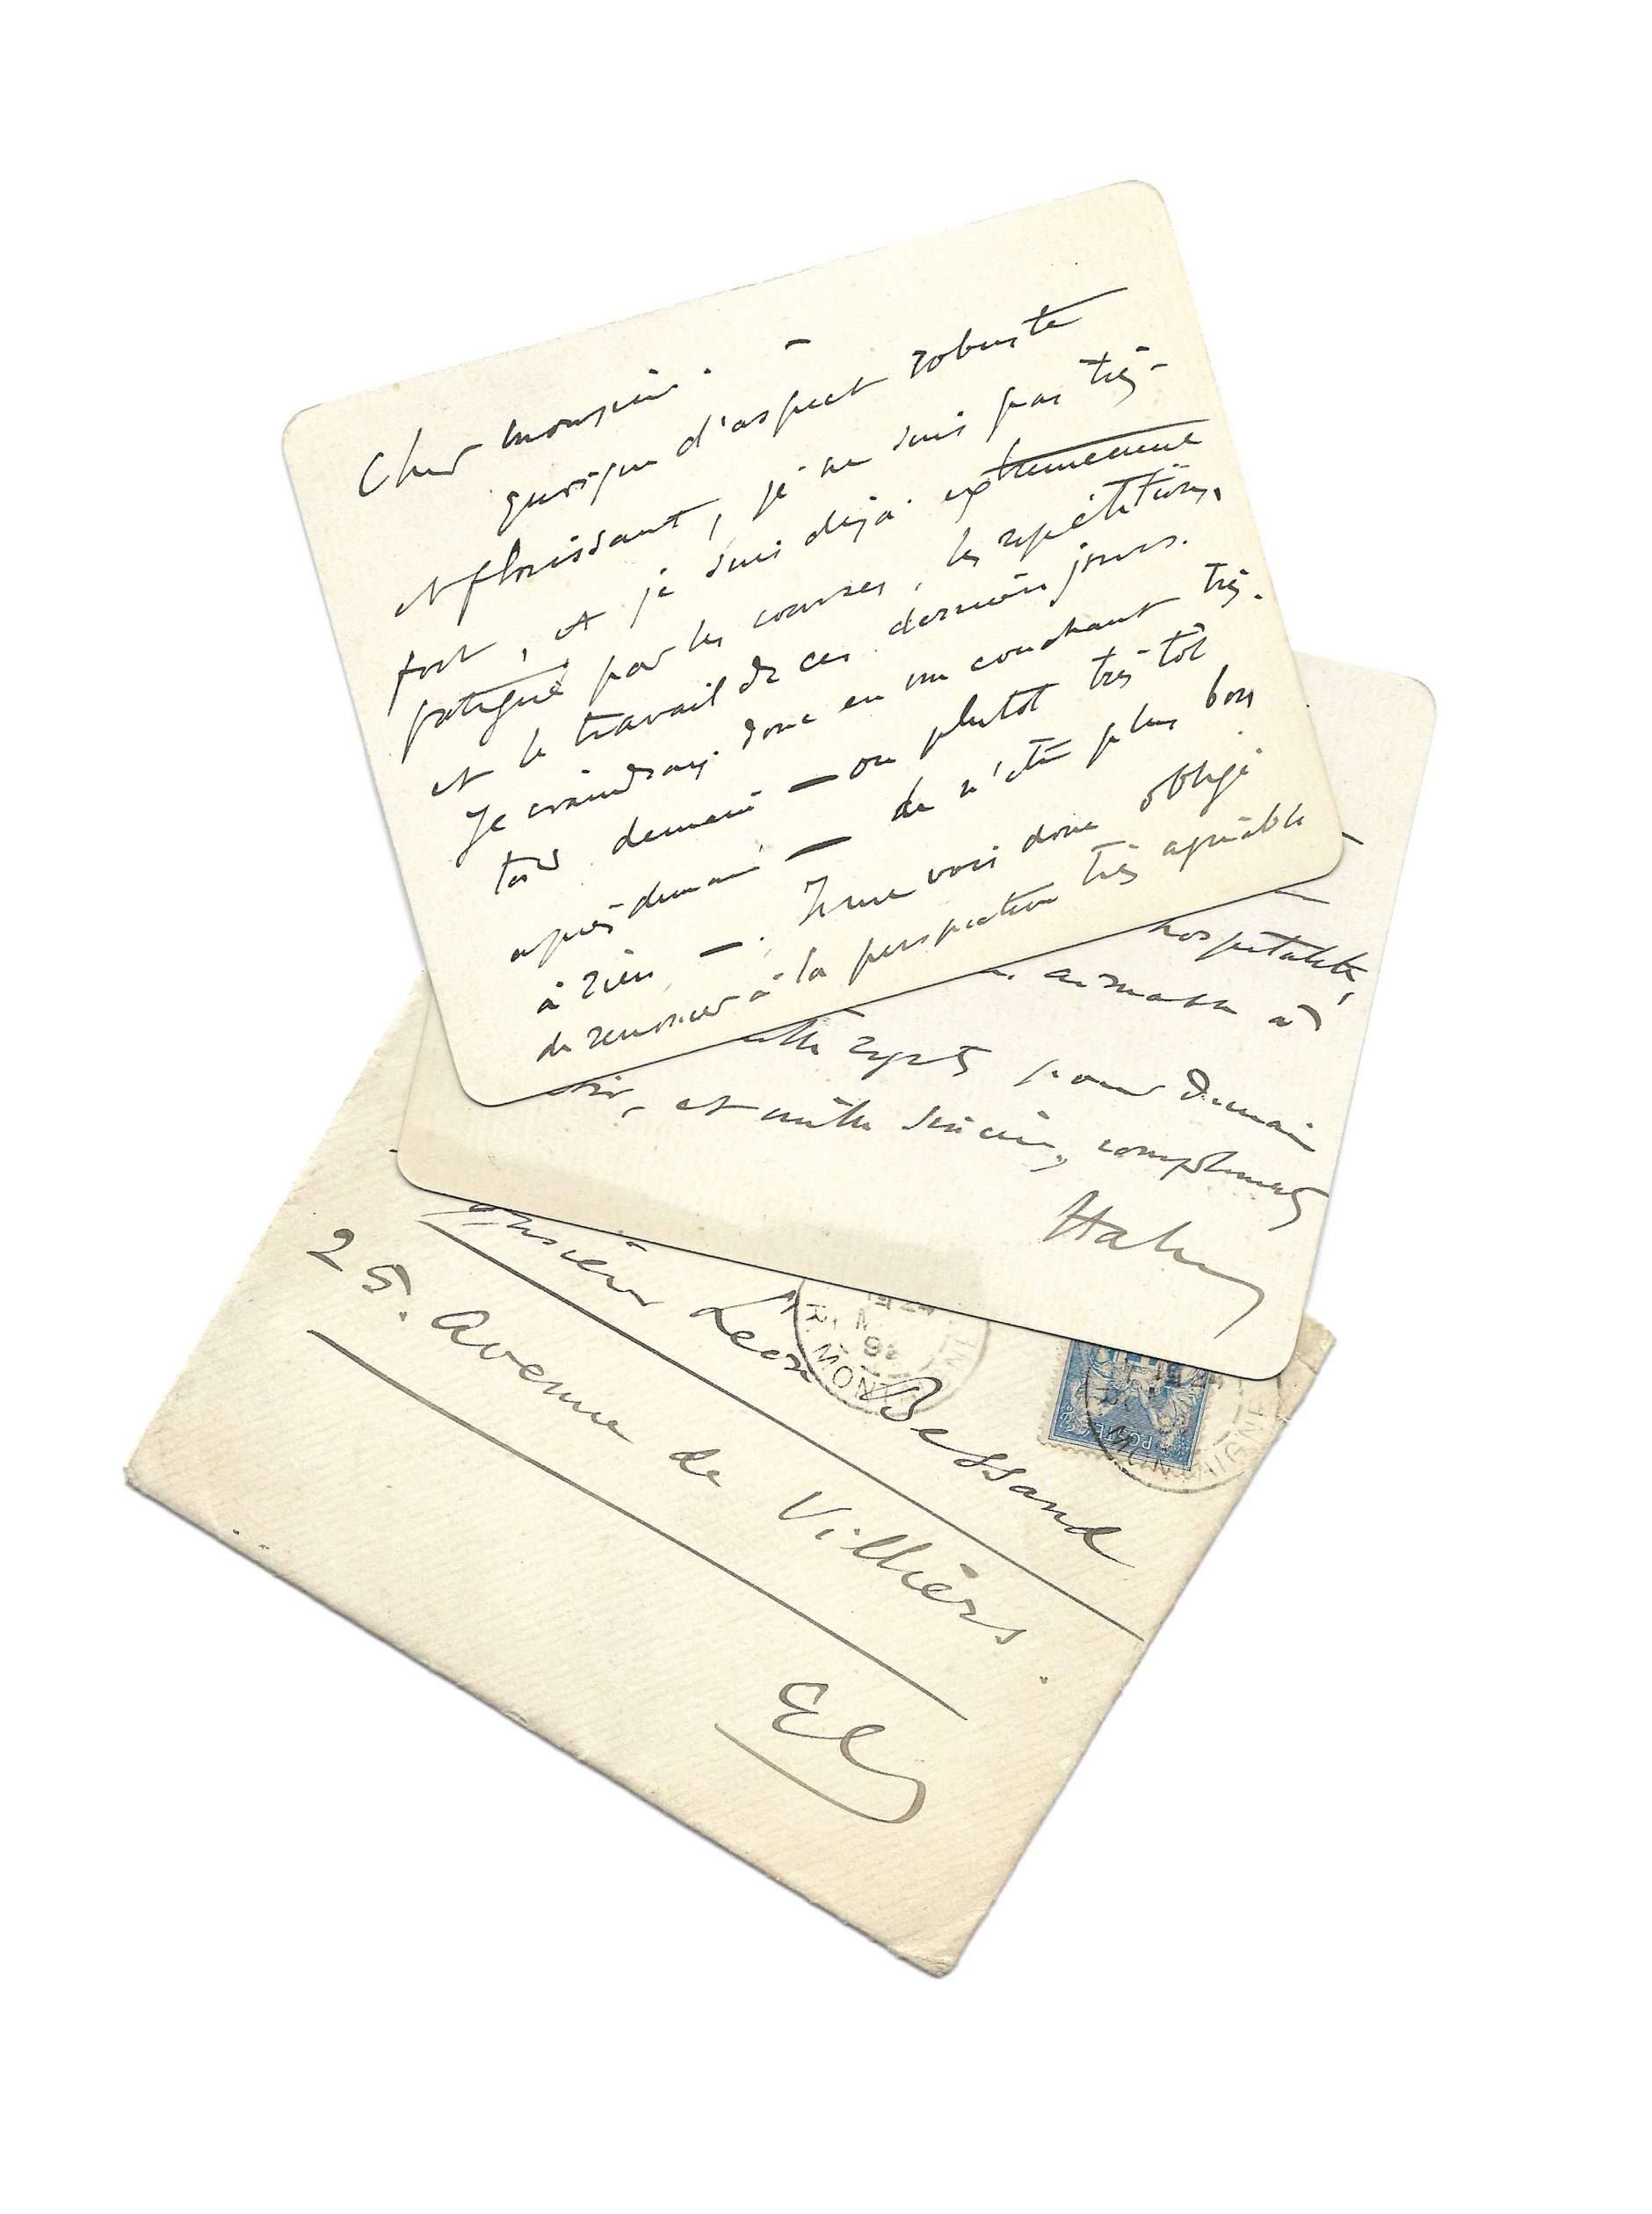 Cher monsieur. —
quoique d'aspect robuste
et florissant, je ne suis pas très-
fort, et je suis déjà extrêmement
fatigué par les courses, les répétitions,
et le travail de ces derniers jours.
Je craindrais donc en me couchant très-
tard demain — ou plutôt très-tôt
après demain — de n'être plus bon
à rien —. Je me vois donc obligé
de renoncer à la perspective très agréable
hospitalité,
aimable à
regrets pour demain
et mille sincères compliments
Hahn
Léon Bessand
25. Avenue de Villiers.
EV
MONTAIGNE
POSTE